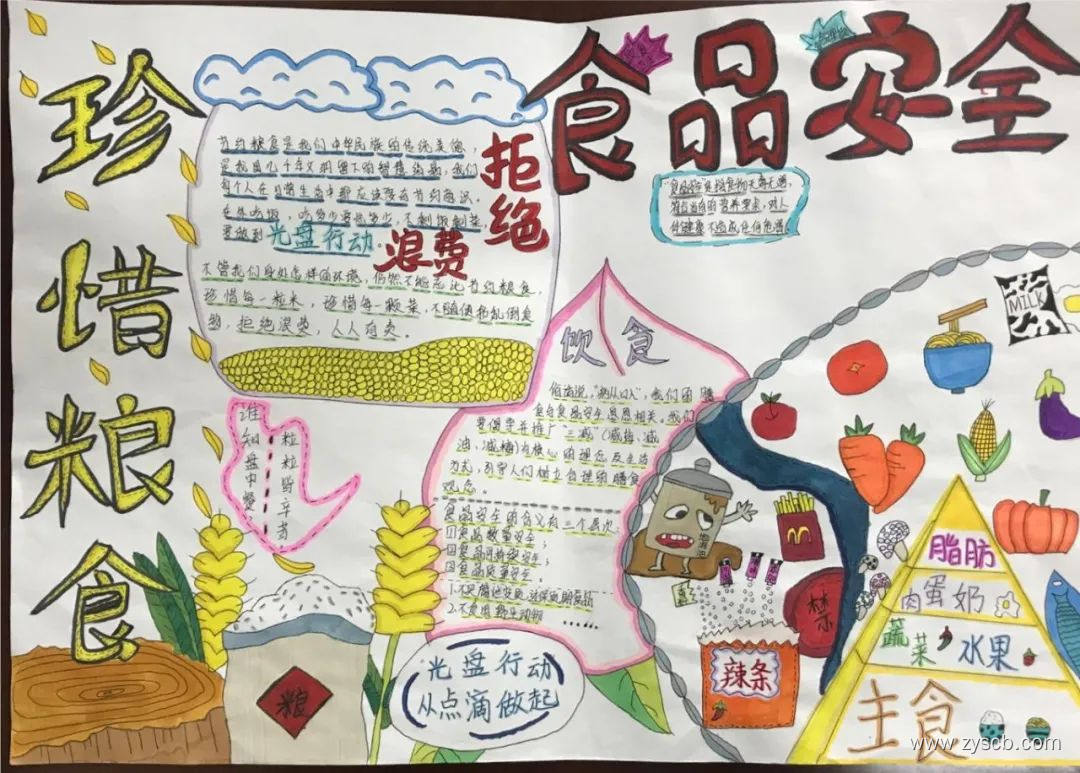 珍惜粮食
食品安全
节约粮食是我们中华民族的传统美德，
是我国几千年文明留下的智慧
每个人在日常生活中都应该要有节约意识。
在外吃饭，吃多少要多少，不剩饭剩菜，
要做到光盘行动。
拒绝
浪费
不管我们身处怎样的环境，仍然不能忘记节约粮食，
珍惜每一粒米，珍惜每一颗菜，不随便扔乱倒食
物，拒绝浪费，人人有责
"食品安全"是指食物无毒无害，
符合当有的营养要求，对人
体健康不造成任何危害
谁知盘中餐
粒粒皆辛苦
饮食
俗话说，"病从口入"，我们的膳
食与食品安全息息相关。我们
要倡导并推广"三减"（减盐、减
油、减糖）为核心的理念及生活
方式，引导人们树立合理的膳食
观念。
食品安全的含义有三个层次：
①食品数量安全；
②食品可持续安全；
③食品质量安全。
2.不食用野生动物
......
光盘行动
从点滴做起
粮
地沟油
禁
辣条
MILK
脂肪
肉蛋奶
蔬菜 水果
主食
www.zyscb.com